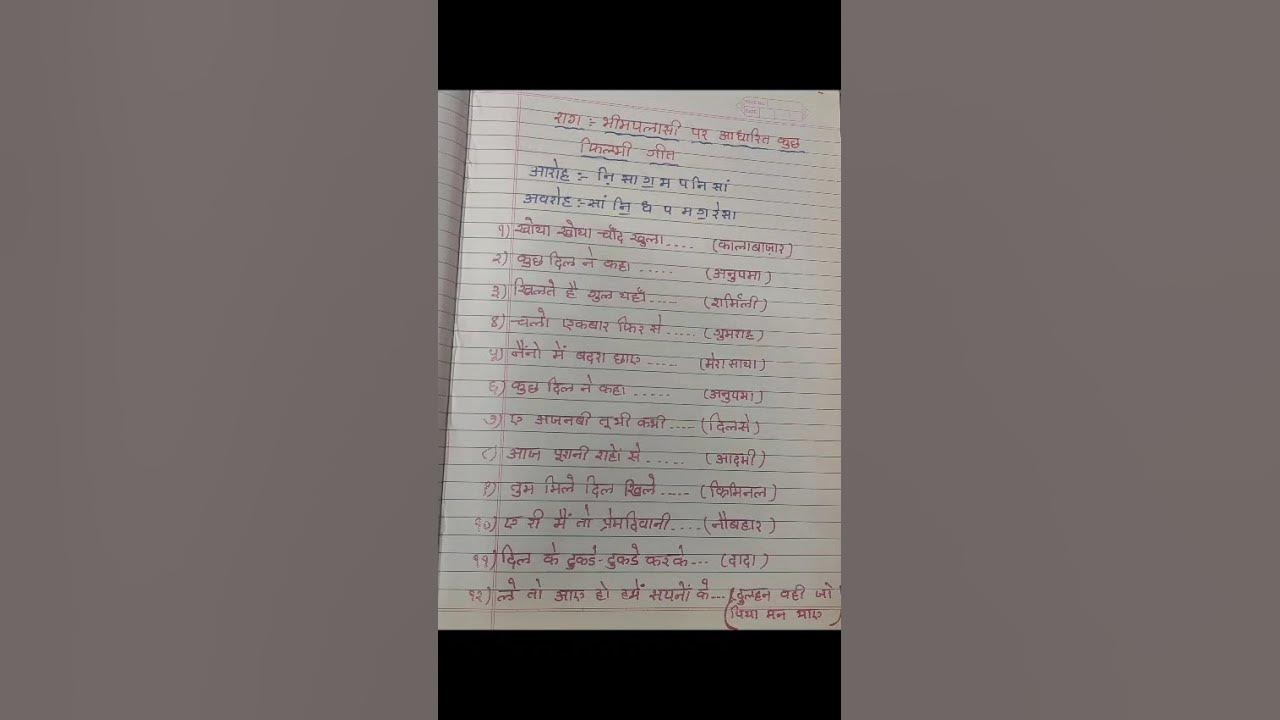 राग :- भीमपलासी पर आधारित कुछ
फिल्मी गीत
आरोह :- नि॒ सा ग॒ म प नि सां
अवरोह :- सां नि॒ ध प म ग॒ रे सा
१) खोया खोया चाँद खुला.... (कालाबाज़ार)
२) कुछ दिल ने कहा ..... (अनुपमा)
३) खिलते है गुल यहाँ.... (शर्मिली)
४) चलो एकबार फिर से..... (गुमराह)
५) नैंनो में बदरा छाए ..... (मेरा साया)
६) कुछ दिल ने कहा ..... (अनुपमा)
७) ए अजनबी तू भी कभी.... (दिलसे)
८) आज पूरानी राहों से ..... (आदमी)
९) तुम मिले दिल खिले.... (क्रिमिनल)
१०) ए री मैं तो प्रेमदिवानी.... (नौबहार)
११) दिल के टुकडे-टुकडे करके... (दादा)
१२) ले तो आए हो हमें सपनों के... (दुल्हन वही जो
पिया मन भाए)